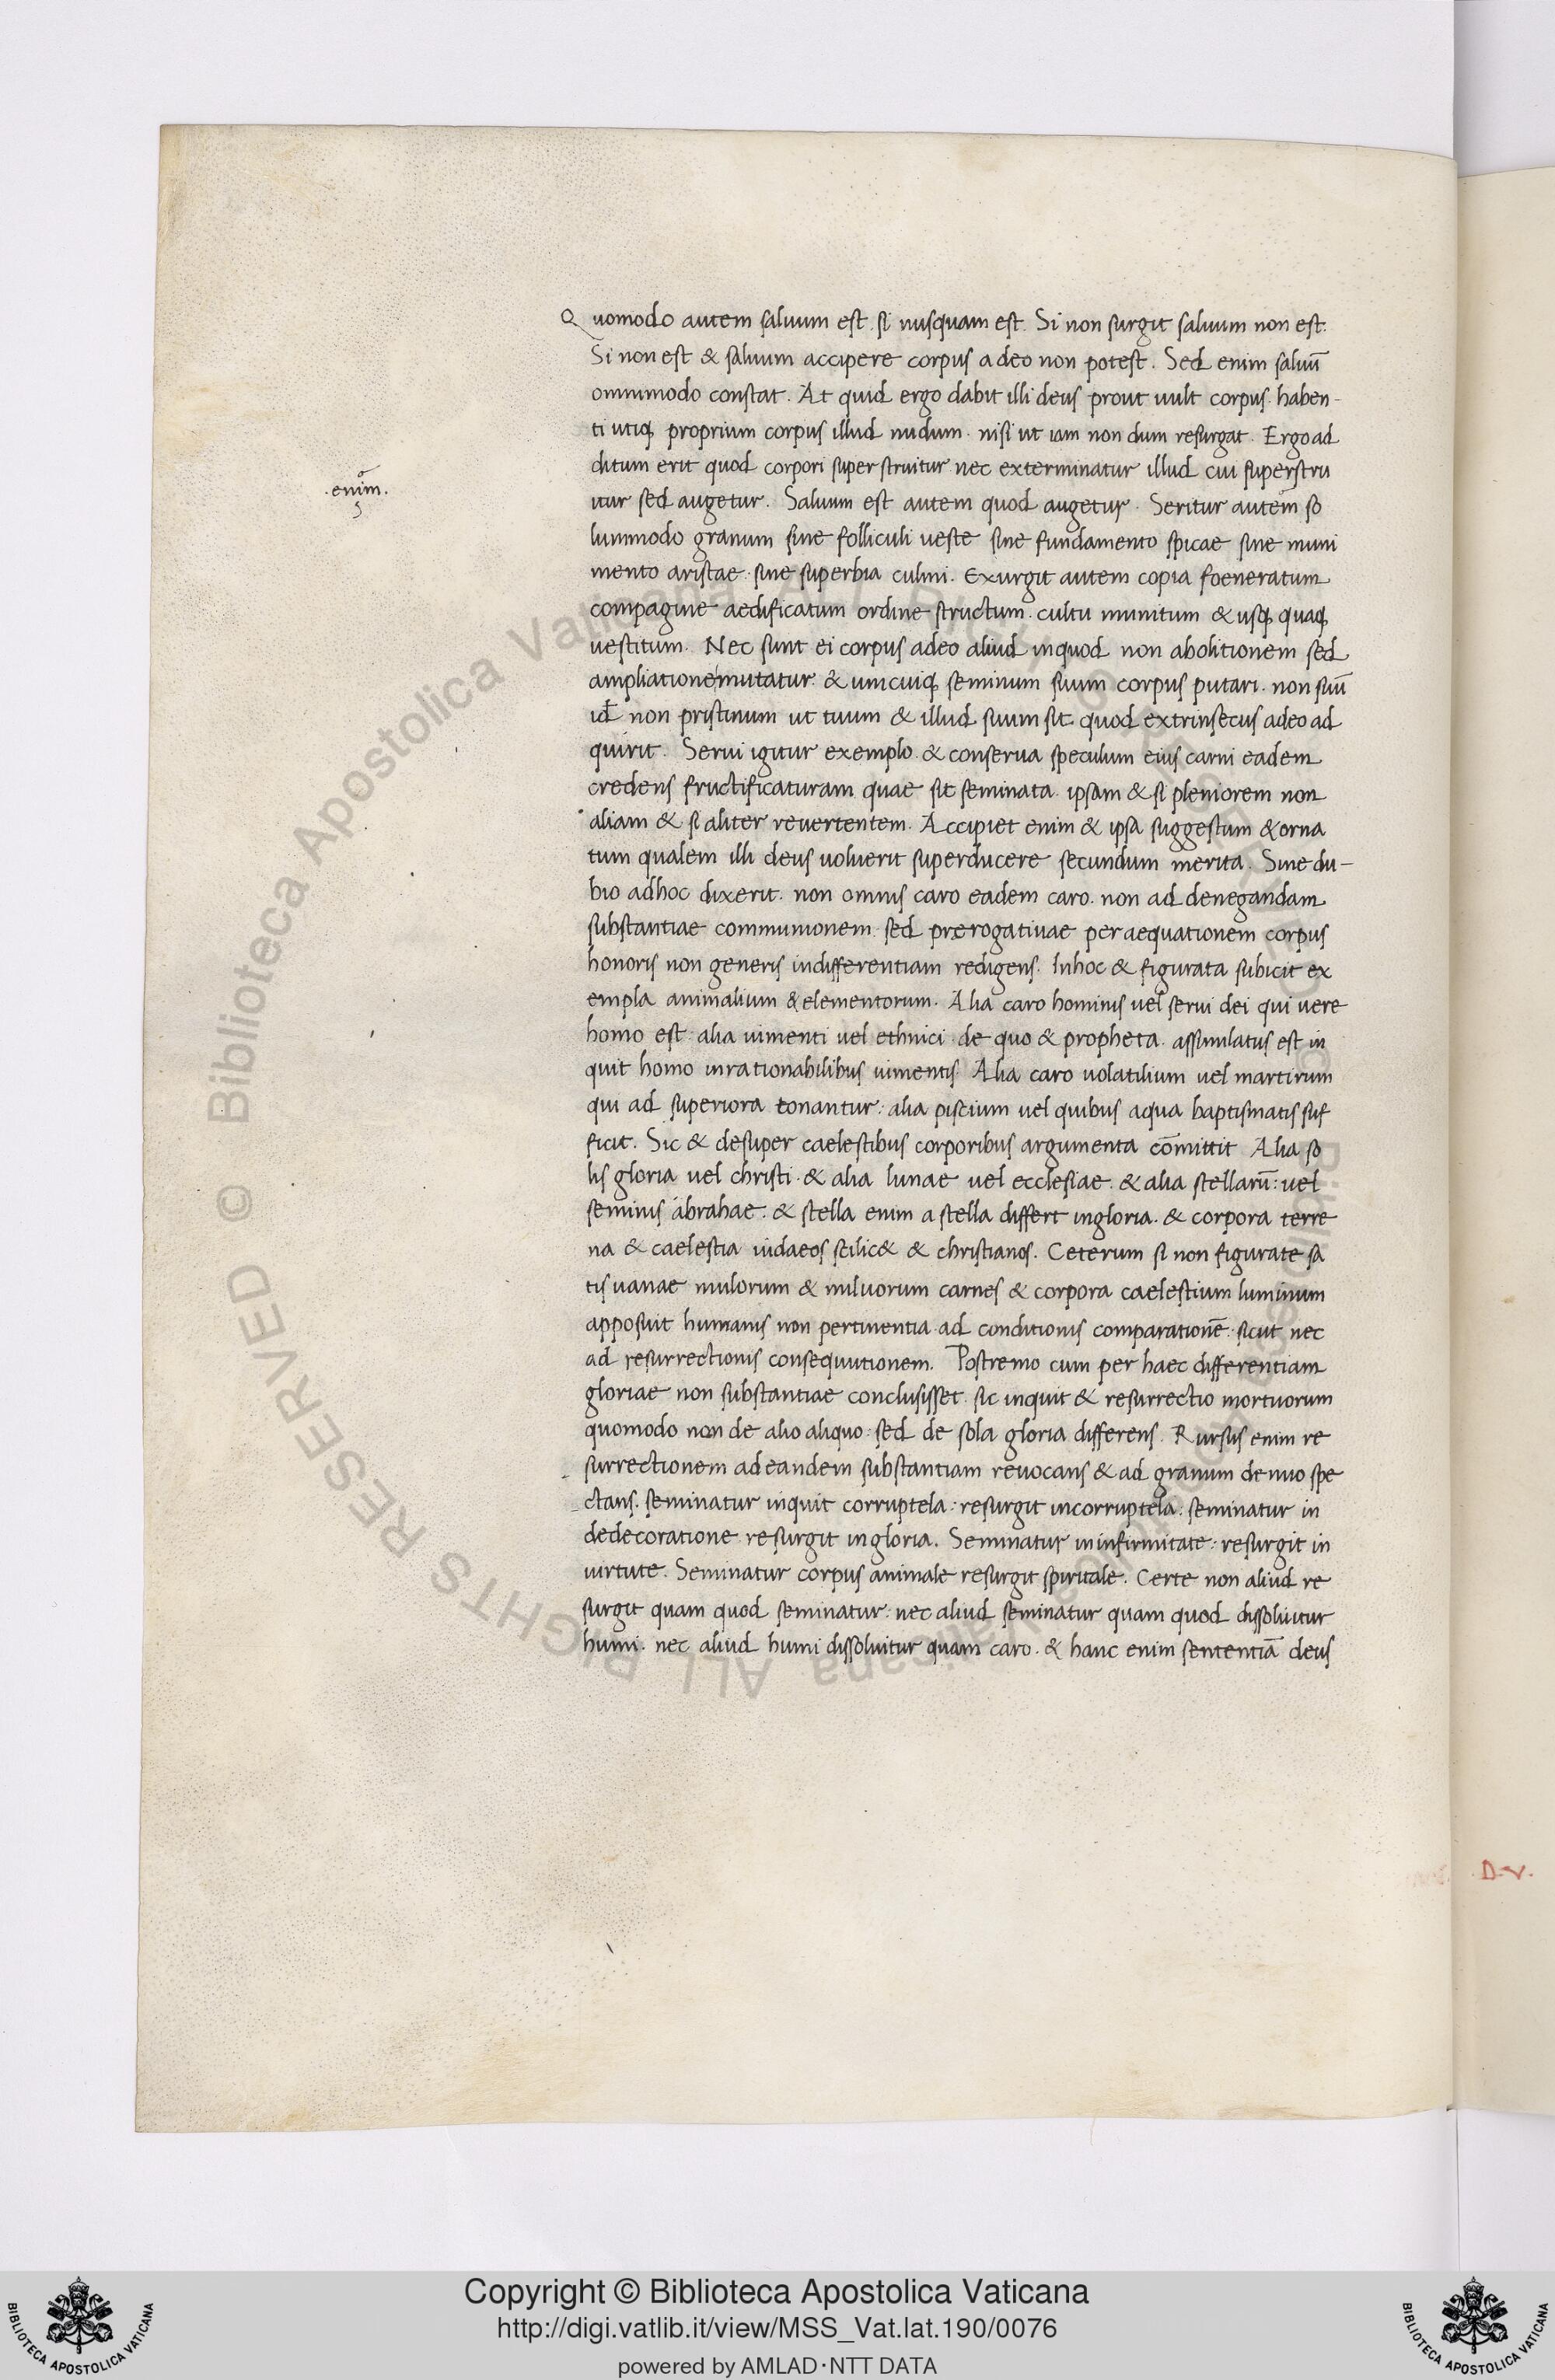 Quomodo autem saluum est. si nusquam est. Si non surgit saluum non est.
Si non est & saluum accipere corpus a deo non potest. Sed enim saluū
omnimodo constat. At quid ergo dabit illi deus prout uult corpus. haben-
ti utiq; proprium corpus illud nudum. nisi ut iam non dum resurgat. Ergo ad
ditum erit quod corpori super struitur nec exterminatur illud cui superstru
.enim.
itur sed augetur. Saluum est autem quod augetur. Seritur autem so
lummodo granum sine folliculi ueste sine fundamento spicae sine muni
mento aristae. sine superbia culmi. Exurgit autem copia foeneratum
compagine aedificatum ordine structum. cultu munitum & usq; quaq;
uestitum. Nec sunt ei corpus adeo aliud inquod non abolitionem sed
ampliatione mutatur. & unicuiq; seminum suum corpus putari. non suū
id non pristinum ut tuum & illud suum sit quod extrinsecus adeo ad
quirit. Serui igitur exemplo. & conserua speculum eius carni eadem
credens fructificaturam quae sit seminata. ipsam & si pleniorem non
aliam & si aliter reuertentem. Accipiet enim & ipsa suggestum & orna
tum qualem illi deus uoluerit superducere secundum merita. Sine du-
bio adhoc dixerit. non omnis caro eadem caro. non ad denegandam
substantiae communionem. sed prerogatiuae peraequationem corpus
honoris non generis indifferentiam redigens. Inhoc & figurata subicit ex
empla animalium & elementorum. Alia caro hominis uel serui dei qui uere
homo est. alia iumenti uel ethnici de quo & propheta. assimilatus est in
quit homo inrationabilibus iumentis. Alia caro uolatilium uel martirum
qui ad superiora conantur: alia piscium uel quibus aqua baptismatis suf
ficit. Sic & desuper caelestibus corporibus argumenta cōmittit. Alia so
lis gloria uel christi. & alia lunae uel ecclesiae. & alia stellarū: uel
seminis abrahae. & stella enim a stella differt ingloria. & corpora terre
na & caelestia iudaeos scilic& & christianos. Ceterum si non figurate sa
tis uanae mulorum & miluorum carnes & corpora caelestium luminum
apposuit humanis non pertinentia ad conditionis comparationē. sicut nec
ad resurrectionis consequutionem. Postremo cum per haec differentiam
gloriae non substantiae conclusisset. sic inquit & resurrectio mortuorum
quomodo non de alio aliquo: sed de sola gloria differens. Rursus enim re
surrectionem ad eandem substantiam reuocans & ad granum denuo spe
ctans. seminatur inquit corruptela: resurgit incorruptela: seminatur in
dedecoratione resurgit ingloria. Seminatur ininfirmitate: resurgit in
uirtute. Seminatur corpus animale resurgit spiritale. Certe non aliud re
surgit quam quod seminatur: nec aliud seminatur quam quod dissoluitur
humi. nec aliud humi dissoluitur quam caro. & hanc enim sententiā deus
D.v.
© Biblioteca Apostolica Vaticana ALL RIGHTS RESERVED
Copyright © Biblioteca Apostolica Vaticana
http://digi.vatlib.it/view/MSS_Vat.lat.190/0076
powered by AMLAD·NTT DATA
BIBLIOTECA APOSTOLICA VATICANA
BIBLIOTECA APOSTOLICA VATICANA